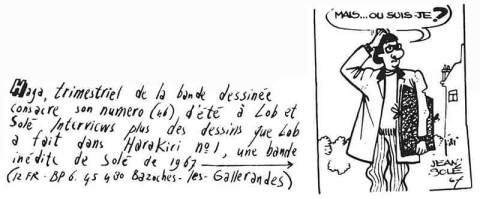 Haga, trimestriel de la bande dessinée
consacre son numero (46) d'été à Lob et
Solé Interviews plus des dessins que Lob
a fait dans HaraKiri n°1, une bande
inédite de Solé de 1967
(12 FR - BP 6. 45 480 Bazoches-les-Gallerandes)
MAIS...OU SUIS-JE?
JEAN
SOLÉ
67